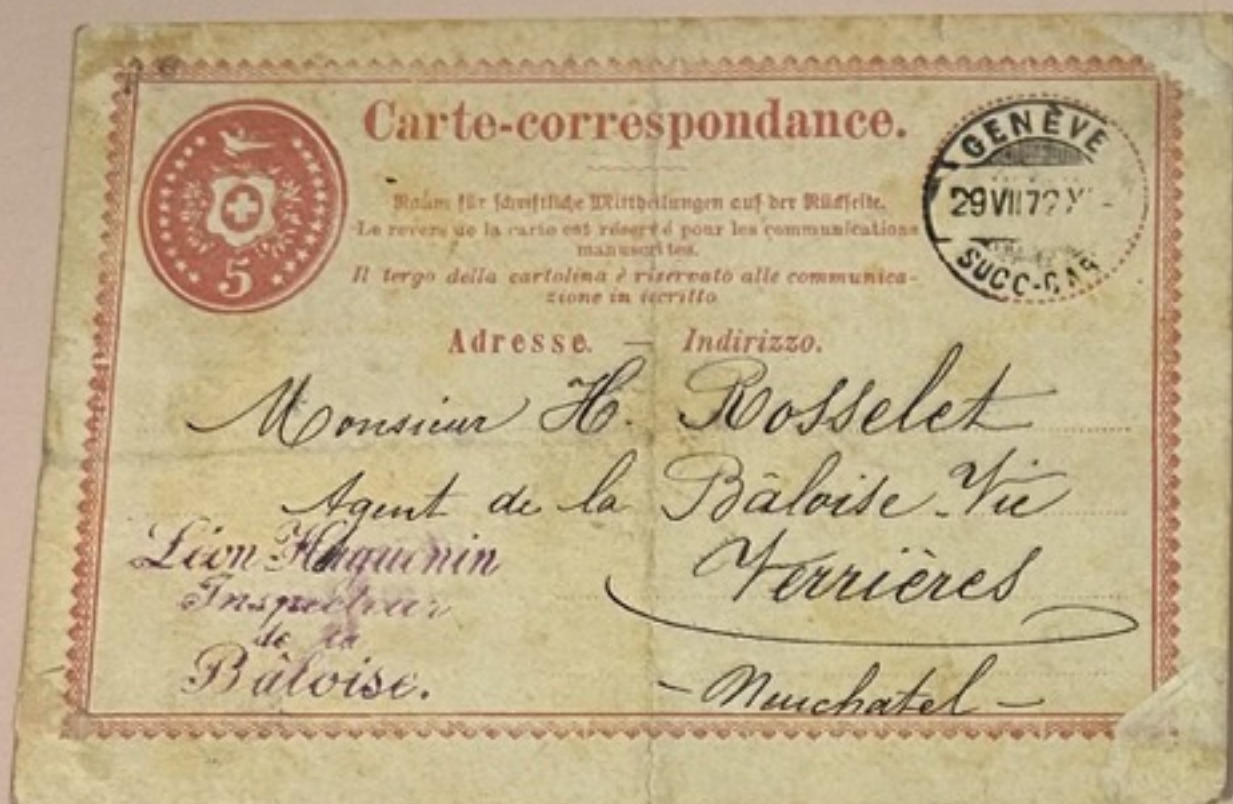 Carte-correspondance.
5
GENÈVE
29 VII 72
SUCC-GAR
Raum für schriftliche Mittheilungen auf der Rückseite.
Le revers de la carte est réservé pour les communications
manuscrites.
Il tergo della cartolina è riservato alle communica-
zione in iscritto
Adresse. — Indirizzo.
Monsieur H. Rosselet
Agent de la Bâloise-Vie
Verrières
- Neuchatel -
Léon Huguenin
Inspecteur
de la
Bâloise.